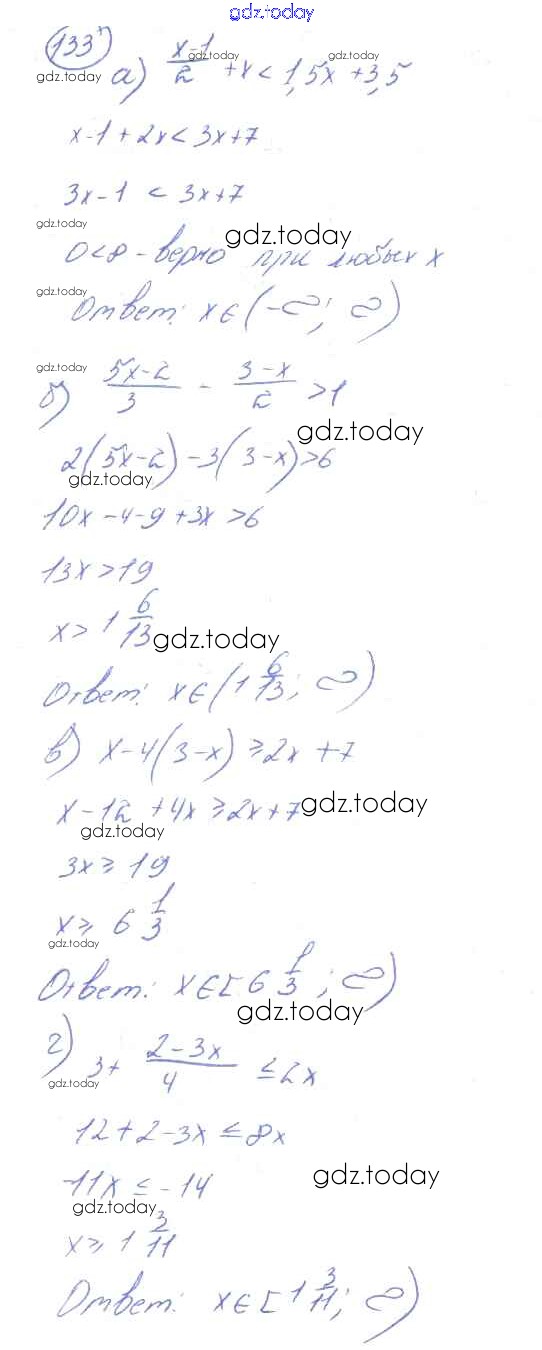 gdz.today
133
gdz.today
а) (x-1)/2 + x < 1,5x + 3,5
gdz.today
gdz.today
gdz.today
x-1 + 2x < 3x+7
3x-1 < 3x+7
gdz.today
gdz.today
0<8 - верно при любых x
gdz.today
Ответ: x∈(-∞; ∞)
gdz.today
б) (5x-2)/3 - (3-x)/2 >1
gdz.today
2(5x-2) -3(3-x)>6
gdz.today
10x -4-9 +3x >6
13x >19
x> 1 6/13
gdz.today
Ответ: x∈(1 6/13; ∞)
в) x-4(3-x) ≥2x +7
x-12 +4x ≥2x+7
gdz.today
gdz.today
3x≥ 19
x≥ 6 1/3
gdz.today
Ответ: x∈[6 1/3; ∞)
gdz.today
г) 3+ (2-3x)/4 ≤2x
gdz.today
12+2-3x ≤8x
gdz.today
-11x ≤ -14
gdz.today
x≥ 1 3/11
Ответ: x∈[1 3/11; ∞)